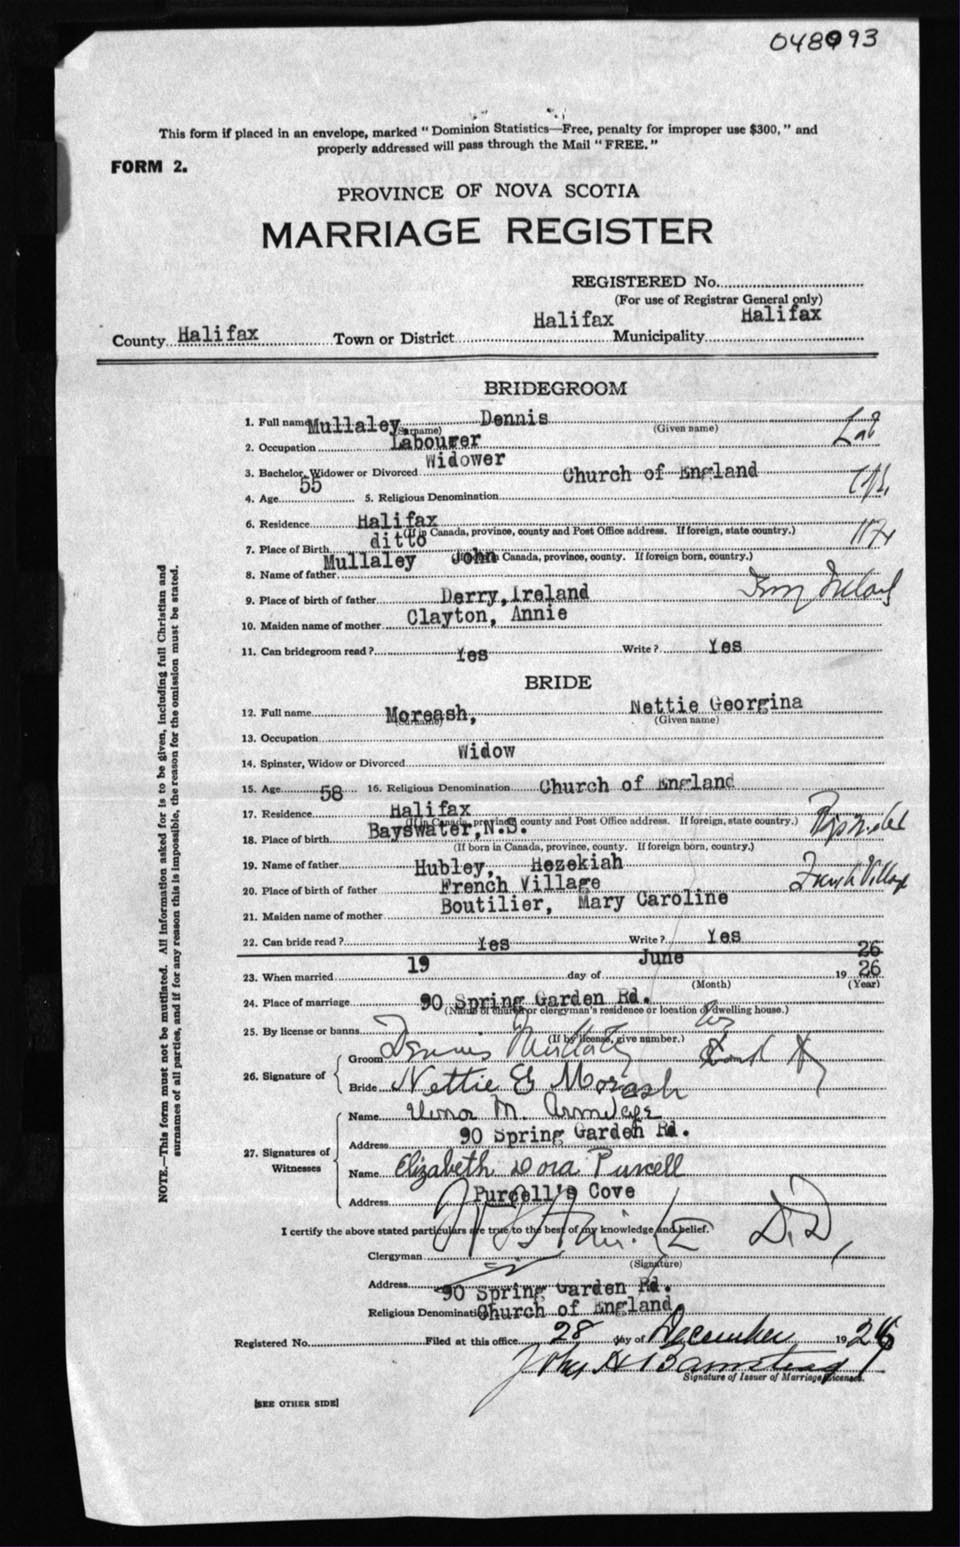 048093
This form if placed in an envelope, marked " Dominion Statistics—Free, penalty for improper use $300, " and
properly addressed will pass through the Mail "FREE."
FORM 2.
PROVINCE OF NOVA SCOTIA
MARRIAGE REGISTER
REGISTERED No.
(For use of Registrar General only)
County Halifax Town or District Halifax Municipality Halifax
BRIDEGROOM
1. Full name Mullaley Dennis
(Surname) (Given name)
2. Occupation Labourer
3. Bachelor, Widower or Divorced Widower
4. Age 55 5. Religious Denomination Church of England
6. Residence Halifax
(If in Canada, province, county and Post Office address. If foreign, state country.)
7. Place of Birth ditto
Canada, province, county. If foreign born, country.)
8. Name of father Mullaley John
9. Place of birth of father Derry, Ireland
10. Maiden name of mother Clayton, Annie
11. Can bridegroom read? Yes Write? Yes
BRIDE
12. Full name Moreash, Nettie Georgina
(Surname) (Given name)
13. Occupation
14. Spinster, Widow or Divorced Widow
15. Age 58 16. Religious Denomination Church of England
17. Residence Halifax
(If in Canada, province, county and Post Office address. If foreign, state country.)
18. Place of birth Bayswater, N.S.
(If born in Canada, province, county. If foreign born, country.)
19. Name of father Hubley, Hezekiah
20. Place of birth of father French Village French Village
21. Maiden name of mother Boutilier, Mary Caroline
22. Can bride read? Yes Write? Yes
26
23. When married 19 day of June 19 26
(Month) (Year)
24. Place of marriage 90 Spring Garden Rd.
(Name of church or clergyman's residence or location of dwelling house.)
25. By license or banns
(If by license, give number.)
26. Signature of
Groom Dennis Mullaley
Bride Nettie G Morash
27. Signatures of Witnesses
Name M. Armitage
Address 90 Spring Garden Rd.
Name Elizabeth Dora Purcell
Address Purcell's Cove
I certify the above stated particulars are true to the best of my knowledge and belief.
Clergyman D.D,
(Signature)
Address 90 Spring Garden Rd.
Religious Denomination Church of England
Registered No. Filed at this office 28 day of December 1926
John H Barnstead
Signature of Issuer of Marriage Licenses.
[SEE OTHER SIDE]
NOTE.—This form must not be mutilated. All information asked for is to be given, including full Christian and
surnames of all parties, and if for any reason this is impossible, the reason for the omission must be stated.